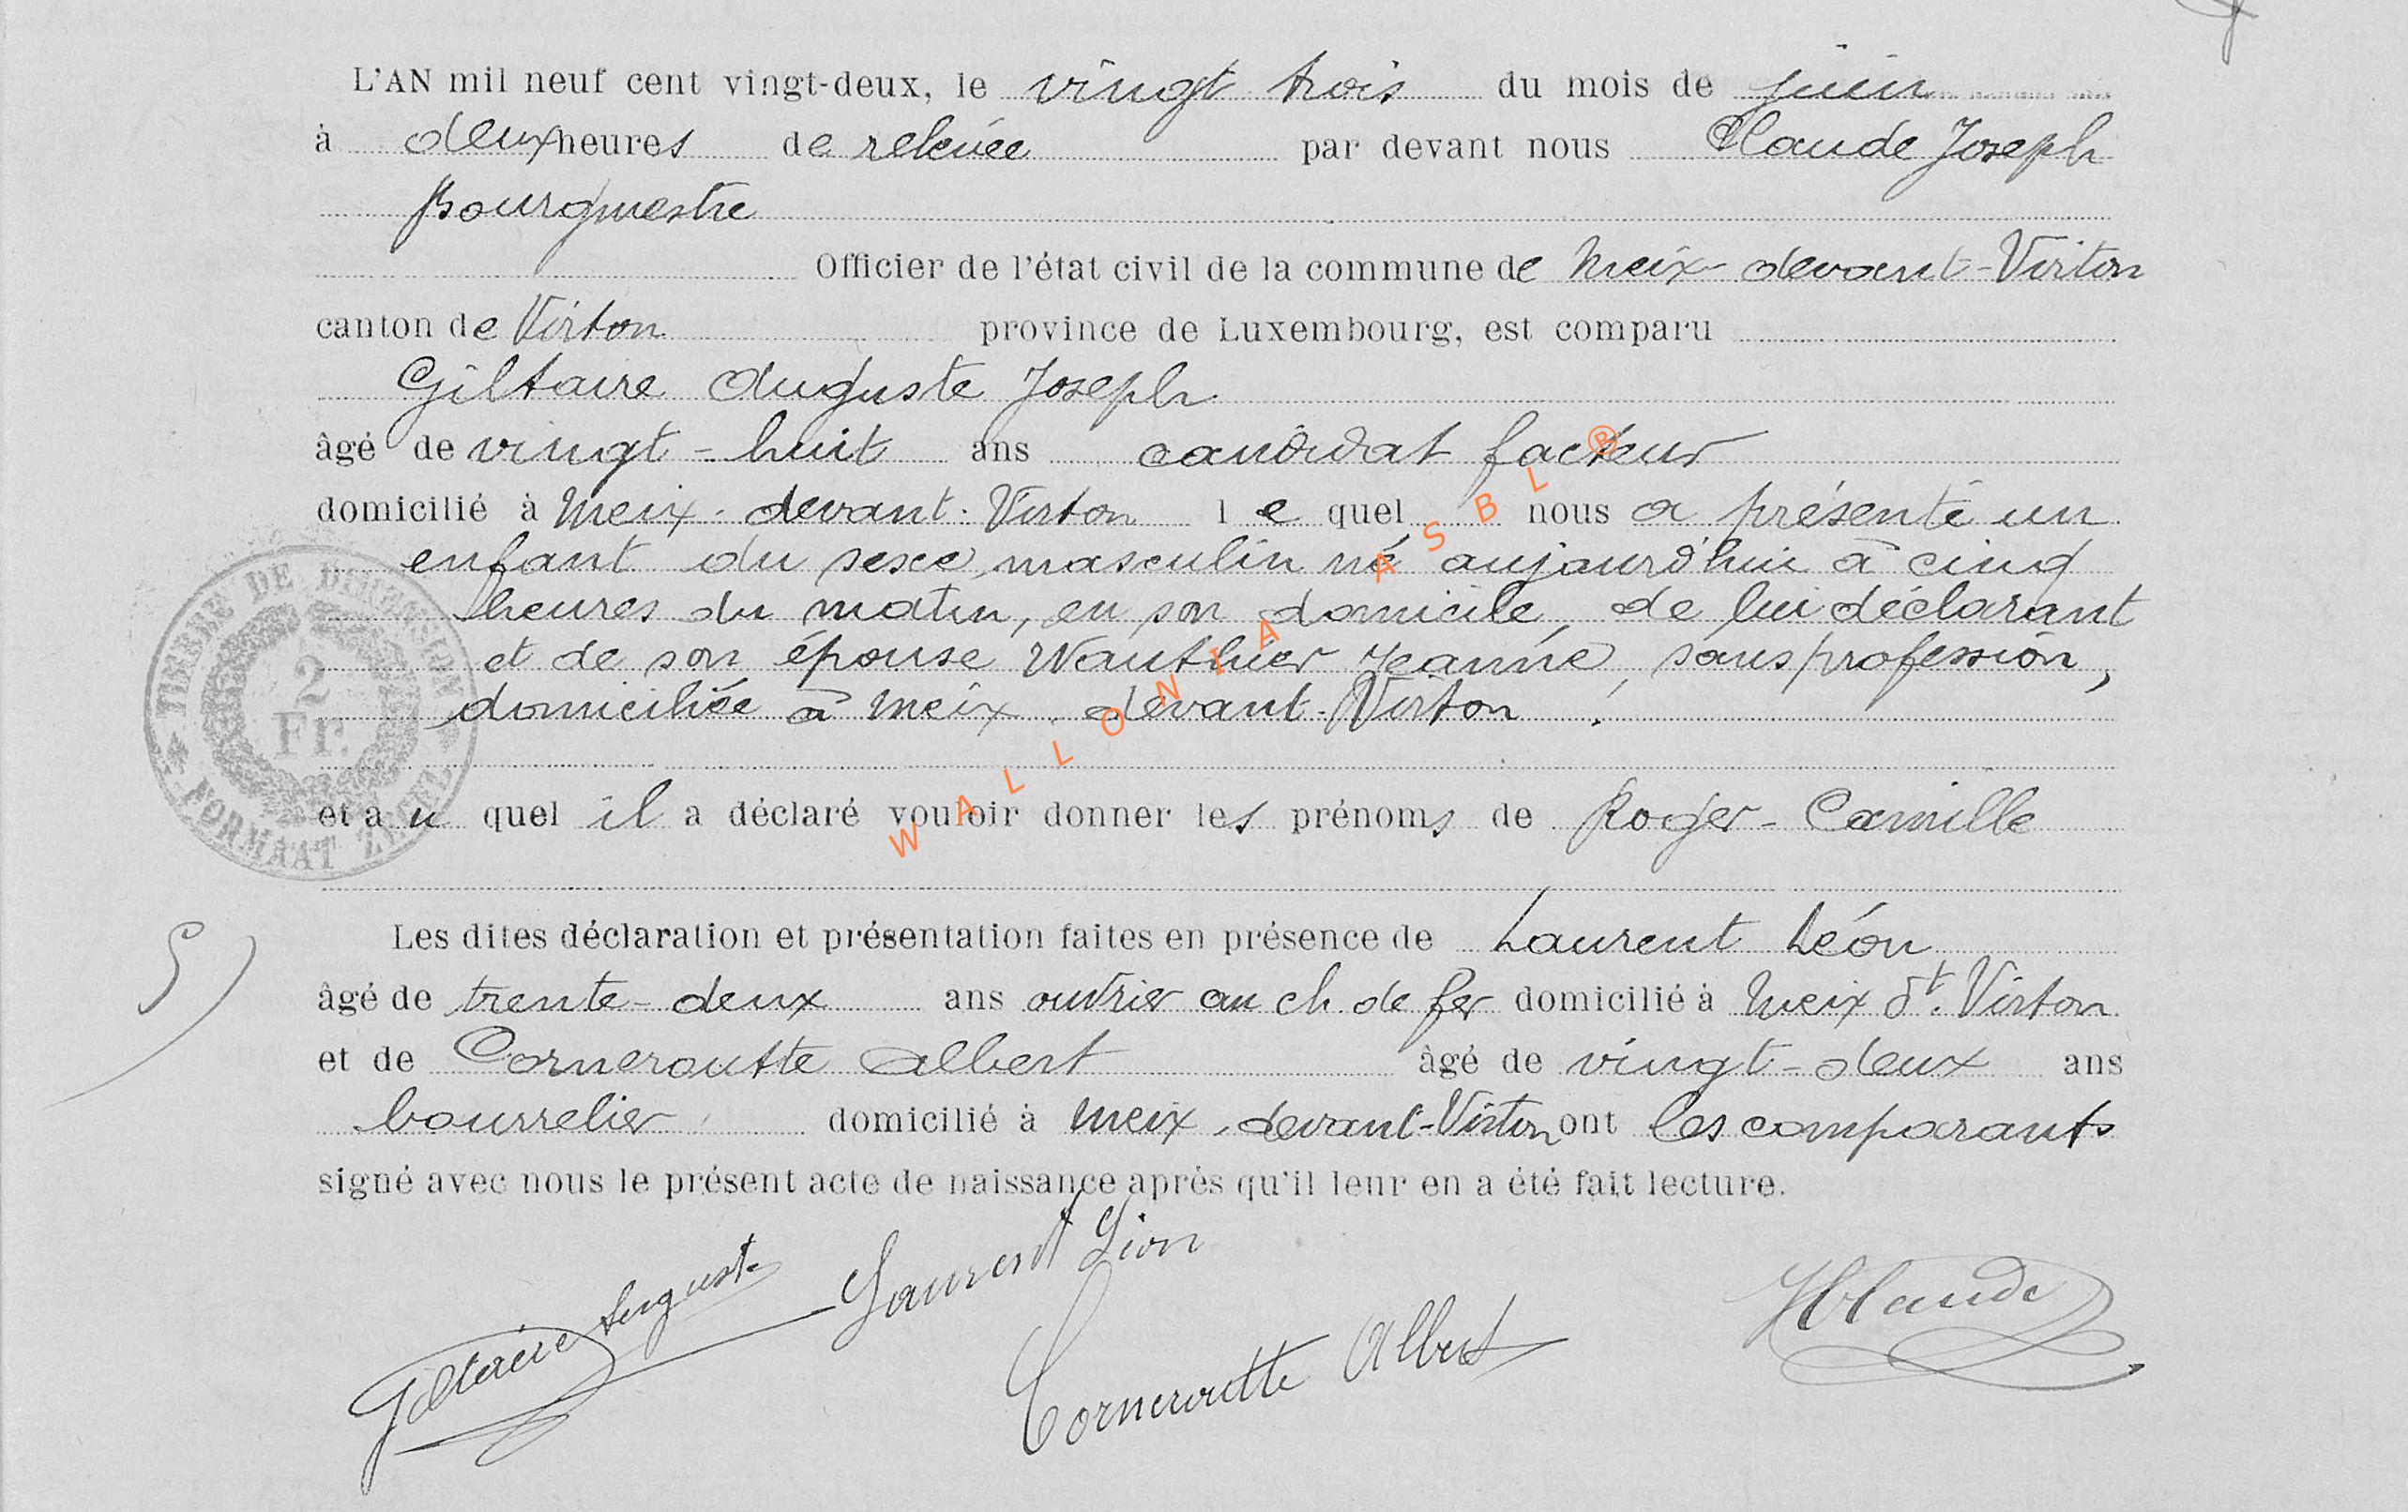 L'AN mil neuf cent vingt-deux, le vingt trois du mois de juin
à deux heures de relevée par devant nous Claude Joseph
Bourgmestre
Officier de l'état civil de la commune de Meix-devant-Virton
canton de Virton province de Luxembourg, est comparu
Giltaire Auguste Joseph
âgé de vingt-huit ans candidat facteur
domicilié à Meix-devant-Virton lequel nous a présenté un
enfant du sexe masculin né aujourd'hui à cinq
heures du matin, en son domicile, de lui déclarant
et de son épouse Wauthier Jeanne, sans profession,
domiciliée à Meix-devant-Virton.
et auquel il a déclaré vouloir donner les prénoms de Roger-Camille
Les dites déclaration et présentation faites en présence de Laurent Léon
âgé de trente-deux ans ouvrier au ch. de fer domicilié à Meix dt. Virton
et de Corneroutte Albert âgé de vingt-deux ans
bourrelier domicilié à Meix-devant-Virton ont les comparants
signé avec nous le présent acte de naissance après qu'il leur en a été fait lecture.
Giltaire Auguste
Laurent Léon
Corneroutte Albert
JClaude
TIMBRE DE DIMENSION
2
Fr.
FORMAAT ZEGEL
WALLONIA ASBL ®